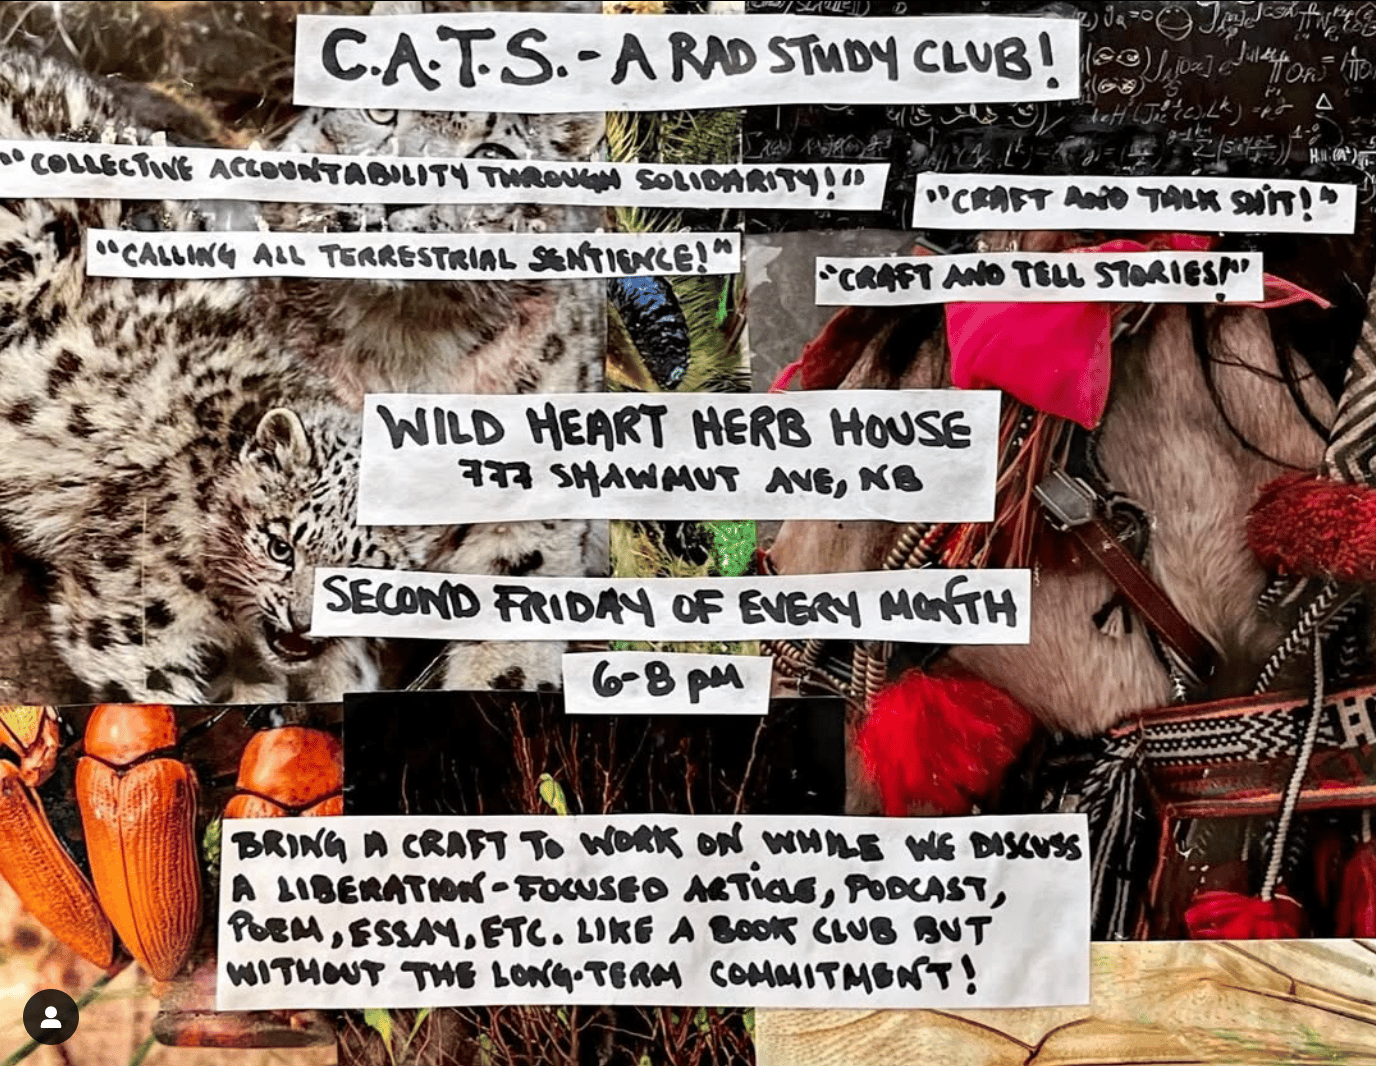 C.A.T.S. - A RAD STUDY CLUB!
"COLLECTIVE ACCOUNTABILITY THROUGH SOLIDARITY!"
"CRAFT AND TALK SHIT!"
"CALLING ALL TERRESTRIAL SENTIENCE!"
"CRAFT AND TELL STORIES!"
WILD HEART HERB HOUSE
777 SHAWMUT AVE, NB
SECOND FRIDAY OF EVERY MONTH
6-8 pM
BRING A CRAFT TO WORK ON WHILE WE DISCUSS
A LIBERATION-FOCUSED ARTICLE, PODCAST,
POEM, ESSAY, ETC. LIKE A BOOK CLUB BUT
WITHOUT THE LONG-TERM COMMITMENT!